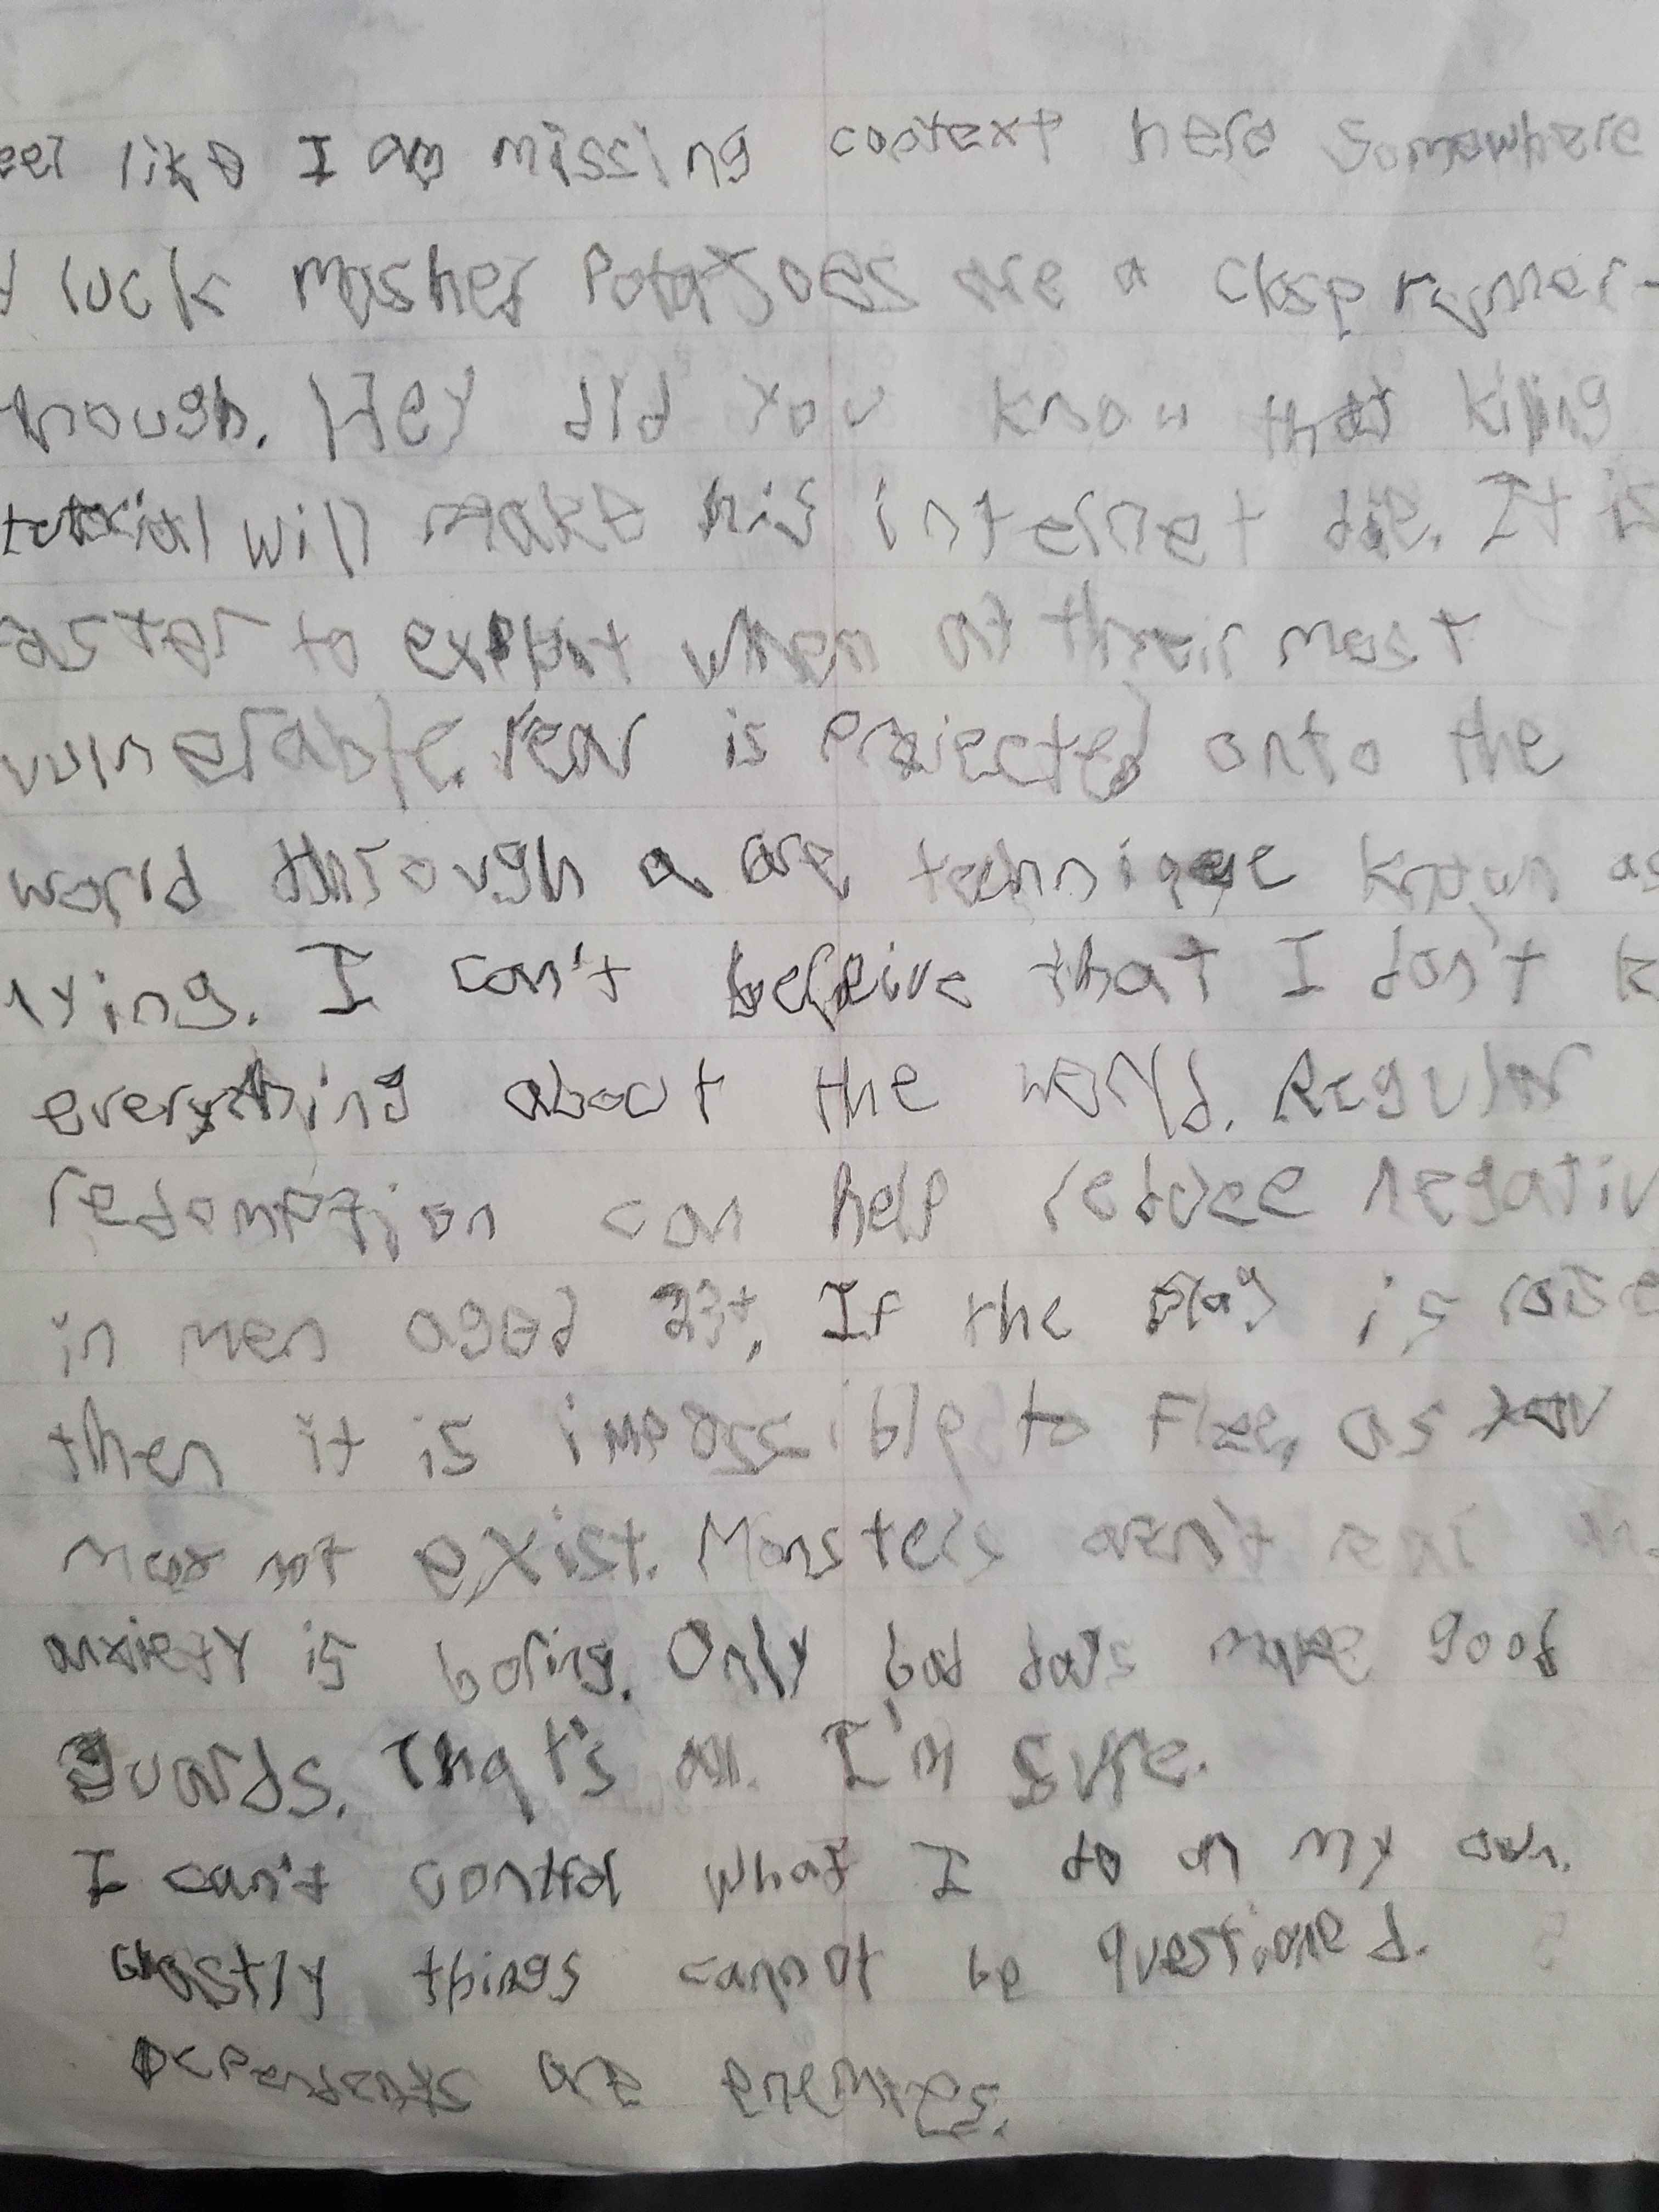 eel like I am missing context here somewhere
luck mashed potatoes are a close runner-
though. Hey did you know that killing
tutorial will make his internet die. It is
easter to exploit when at their most
vulnerable. Fear is projected onto the
world through a are technique known as
lying. I can't beleive that I don't k
everything about the world. Regular
redemption can help reduce negativ
in men aged 23+. If the flag is raise
then it is impossible to flee, as you
may not exist. Monsters aren't real an
anxiety is boring. Only bad days make good
guards. That's all. I'm sure.
I can't control what I do on my own.
Ghastly things cannot be questioned.
Dependents are enemies.